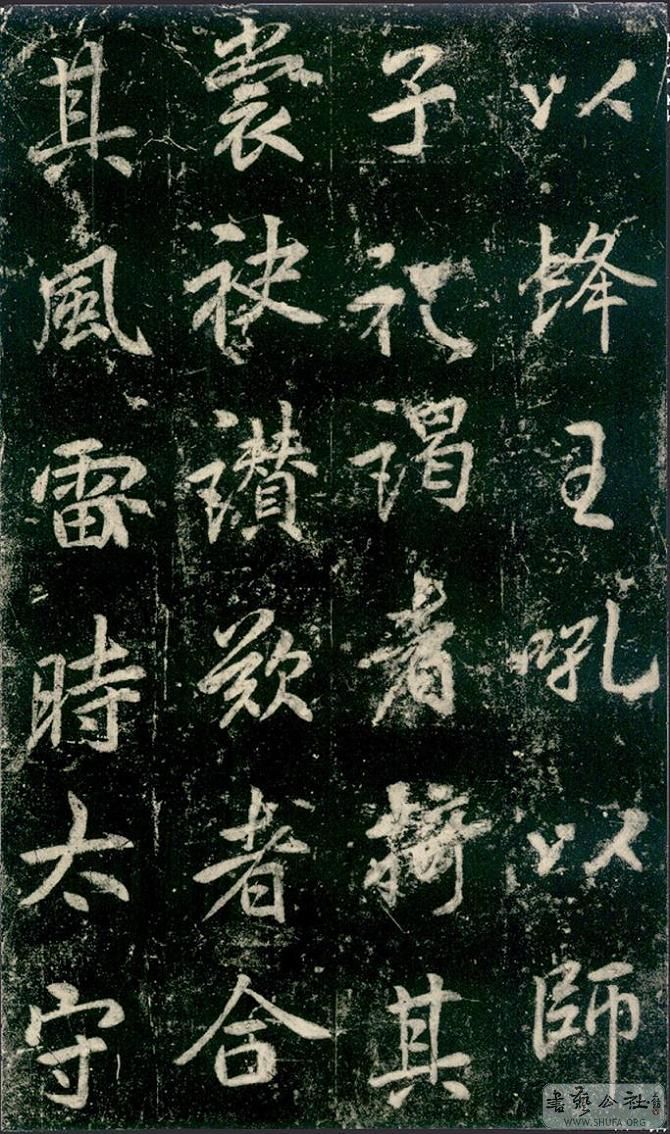 以蜂王吼以師
子礼謁者掎其
裳袂讃歎者合
其風雷時太守
書藝公社
WWW.SHUFA.ORG